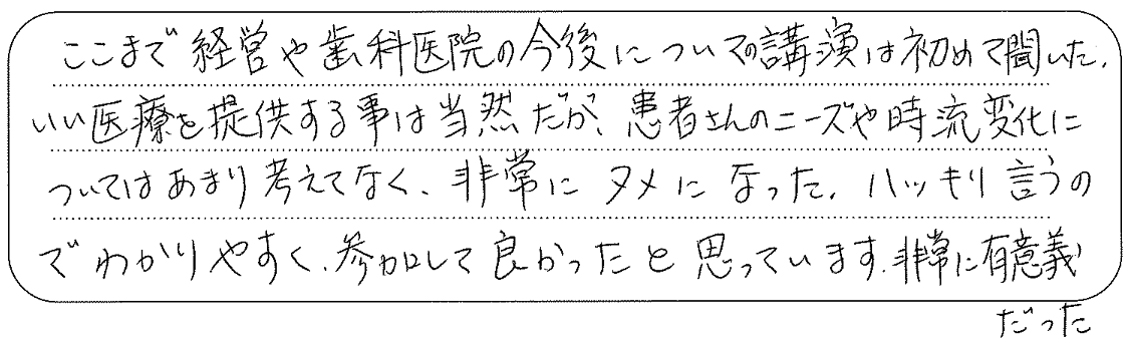 ここまで経営や歯科医院の今後についての講演は初めて聞いた.
いい医療を提供する事は当然だが、患者さんのニーズや時流変化に
ついてはあまり考えてなく、非常にタメになった. ハッキリ言うの
でわかりやすく、参加して良かったと思っています. 非常に有意義
だった